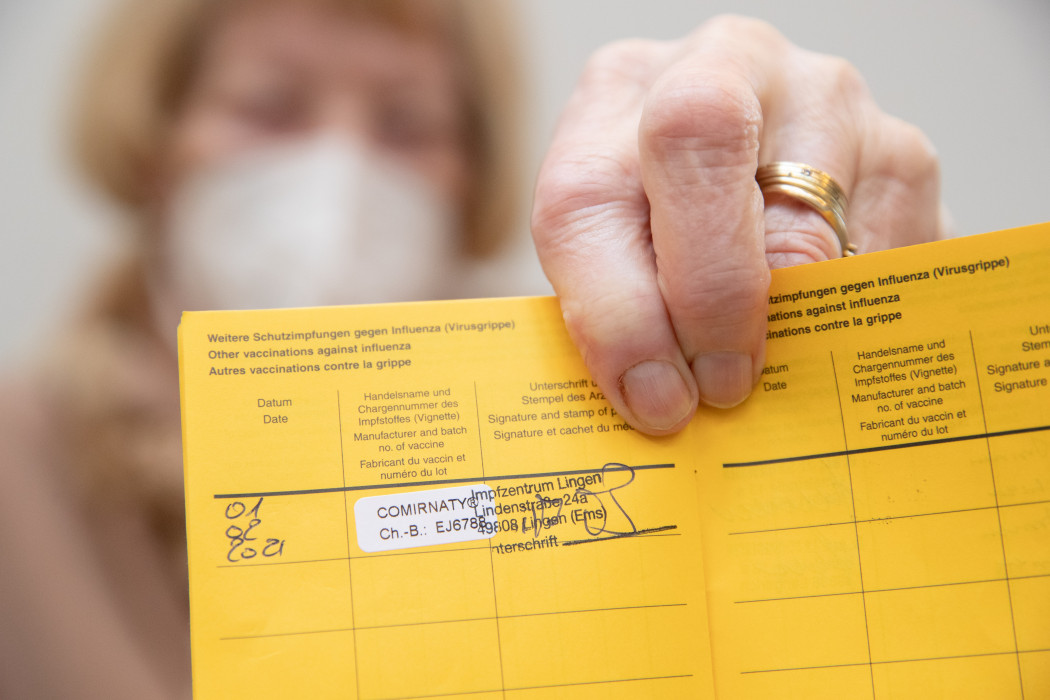 Weitere Schutzimpfungen gegen Influenza (Virusgrippe)
Other vaccinations against influenza
Autres vaccinations contre la grippe
Datum
Date
Handelsname und
Chargennummer des
Impfstoffes (Vignette)
Manufacturer and batch
no. of vaccine
Fabricant du vaccin et
numéro du lot
Unterschrift u
Stempel des Arz
Signature and stamp of p
Signature et cachet du mé
01
02
2021
COMIRNATY®
Ch.-B.: EJ6788
Impfzentrum Lingen
Lindenstraße 24a
49808 Lingen (Ems)
nterschrift
tzimpfungen gegen Influenza (Virusgrippe)
nations against influenza
cinations contre la grippe
atum
Date
Handelsname und
Chargennummer des
Impfstoffes (Vignette)
Manufacturer and batch
no. of vaccine
Fabricant du vaccin et
numéro du lot
Unt
Stem
Signature a
Signature